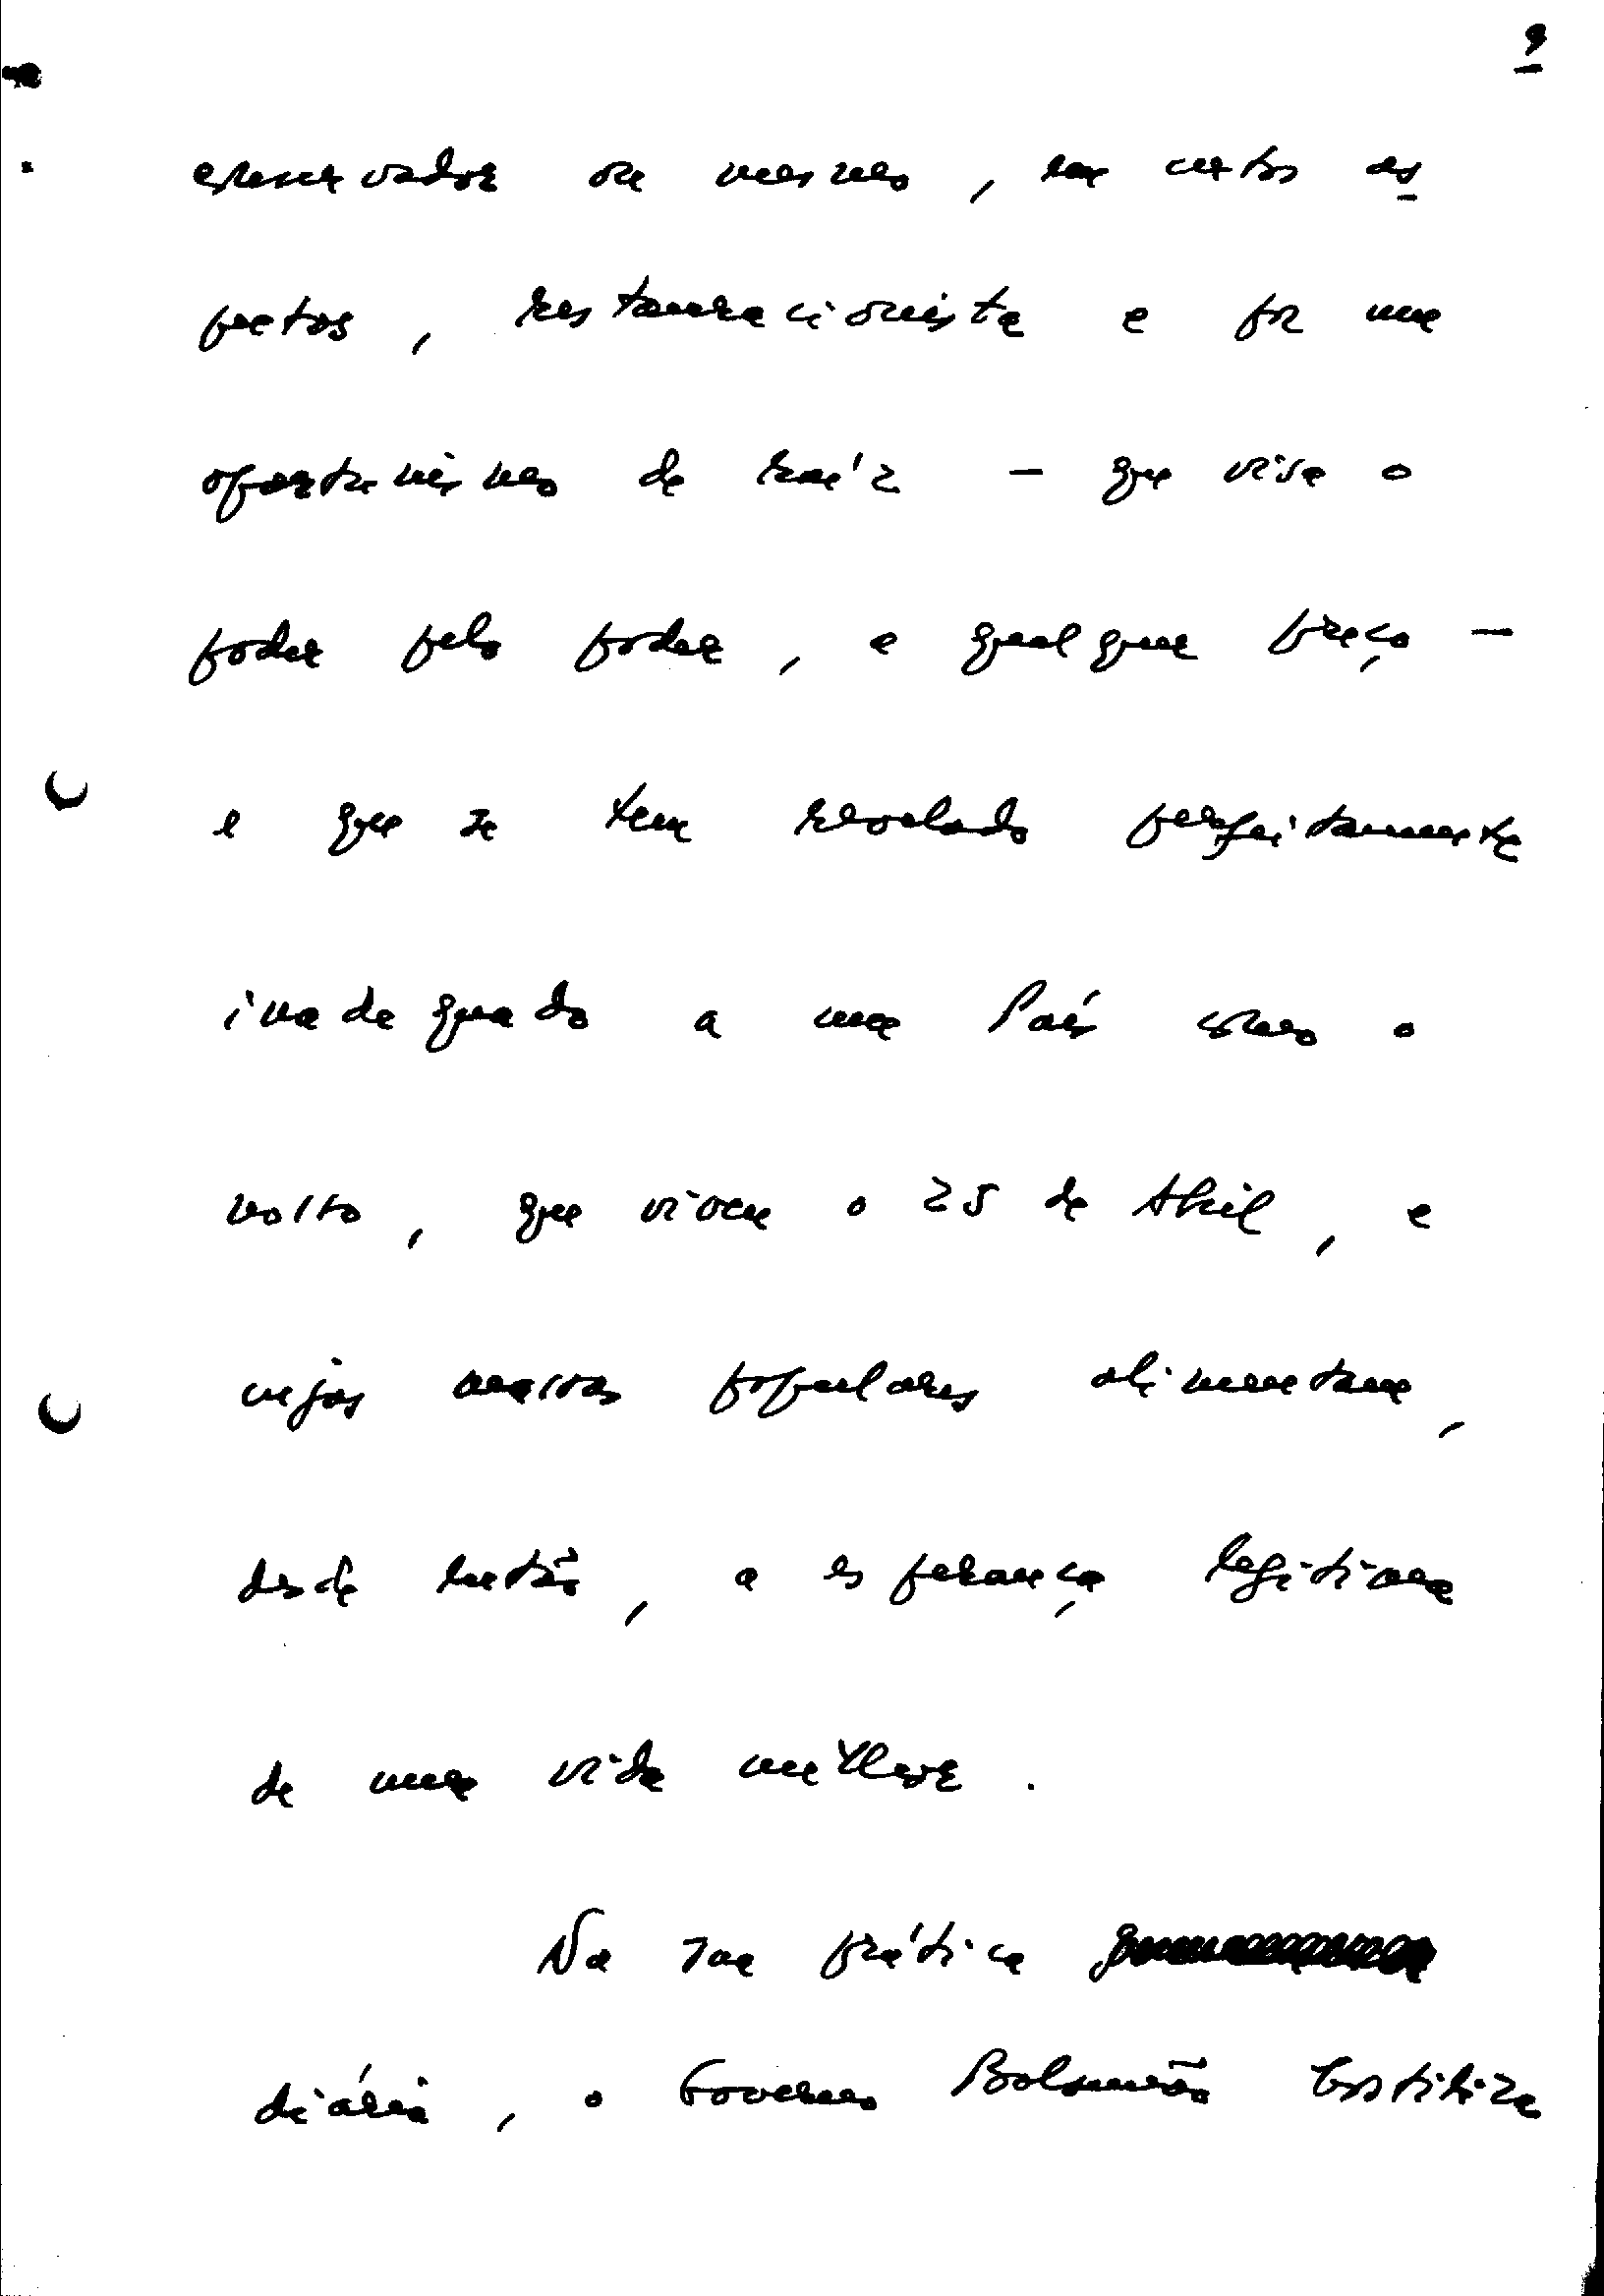 9
conservador ou mesmo, em certos as
pectos, restauracionista e por um
oportunismo de raíz - que visa o
poder pelo poder, a qualquer preço -
e que se tem revelado perfeitamente
inadequado a um País como o
nosso, que viveu o 25 de Abril, e
cujas massas populares alimentam,
desde então, a esperança legítima
de uma vida melhor.
Na sua prática
diária, o Governo Balsemão hostiliza